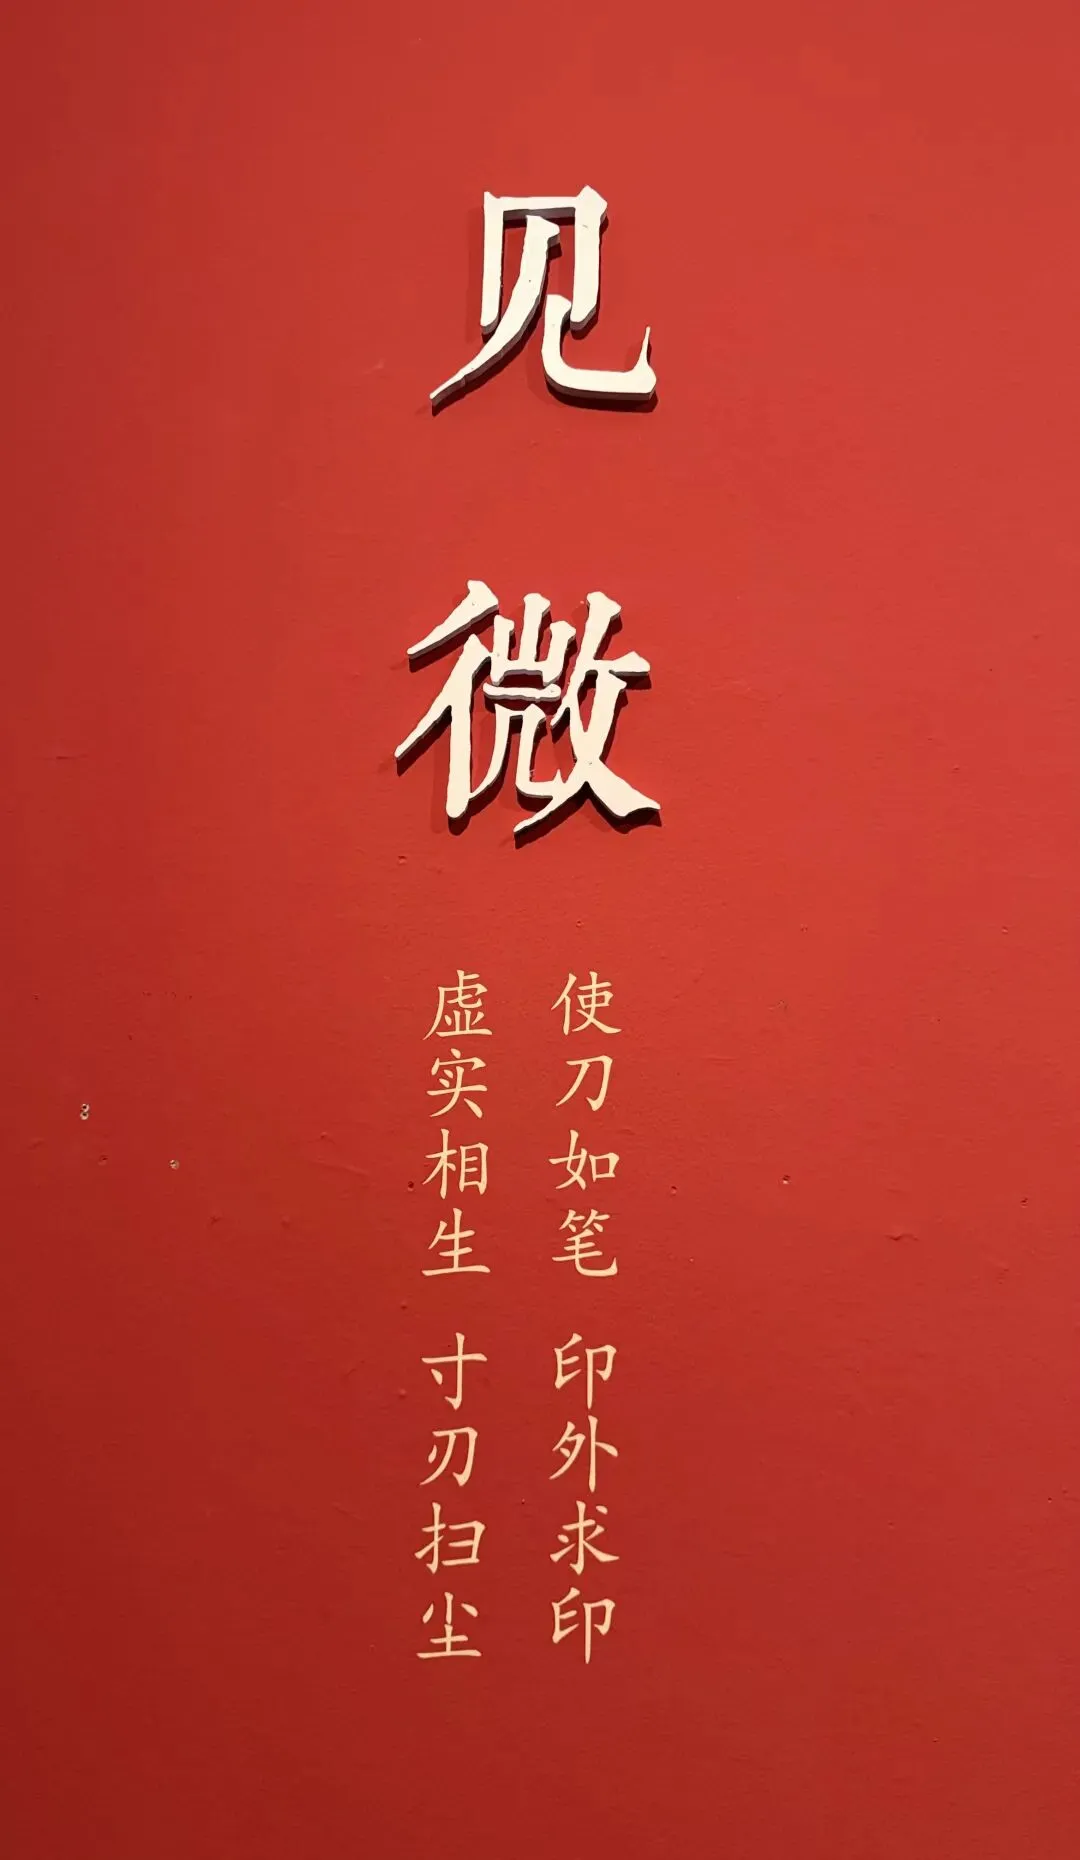 见微
使刀如笔 印外求印
虚实相生 寸刃扫尘